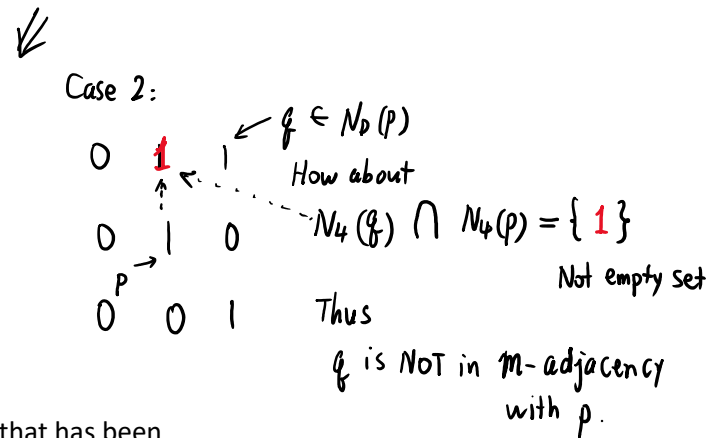 Case 2:
0 1 1 q ∈ N_D (P)
How about
N_4 (q) ∩ N_4 (p) = { 1 }
0 1 0
P
Not empty set
0 0 1 Thus
q is NOT in m-adjacency
with p.
that has been